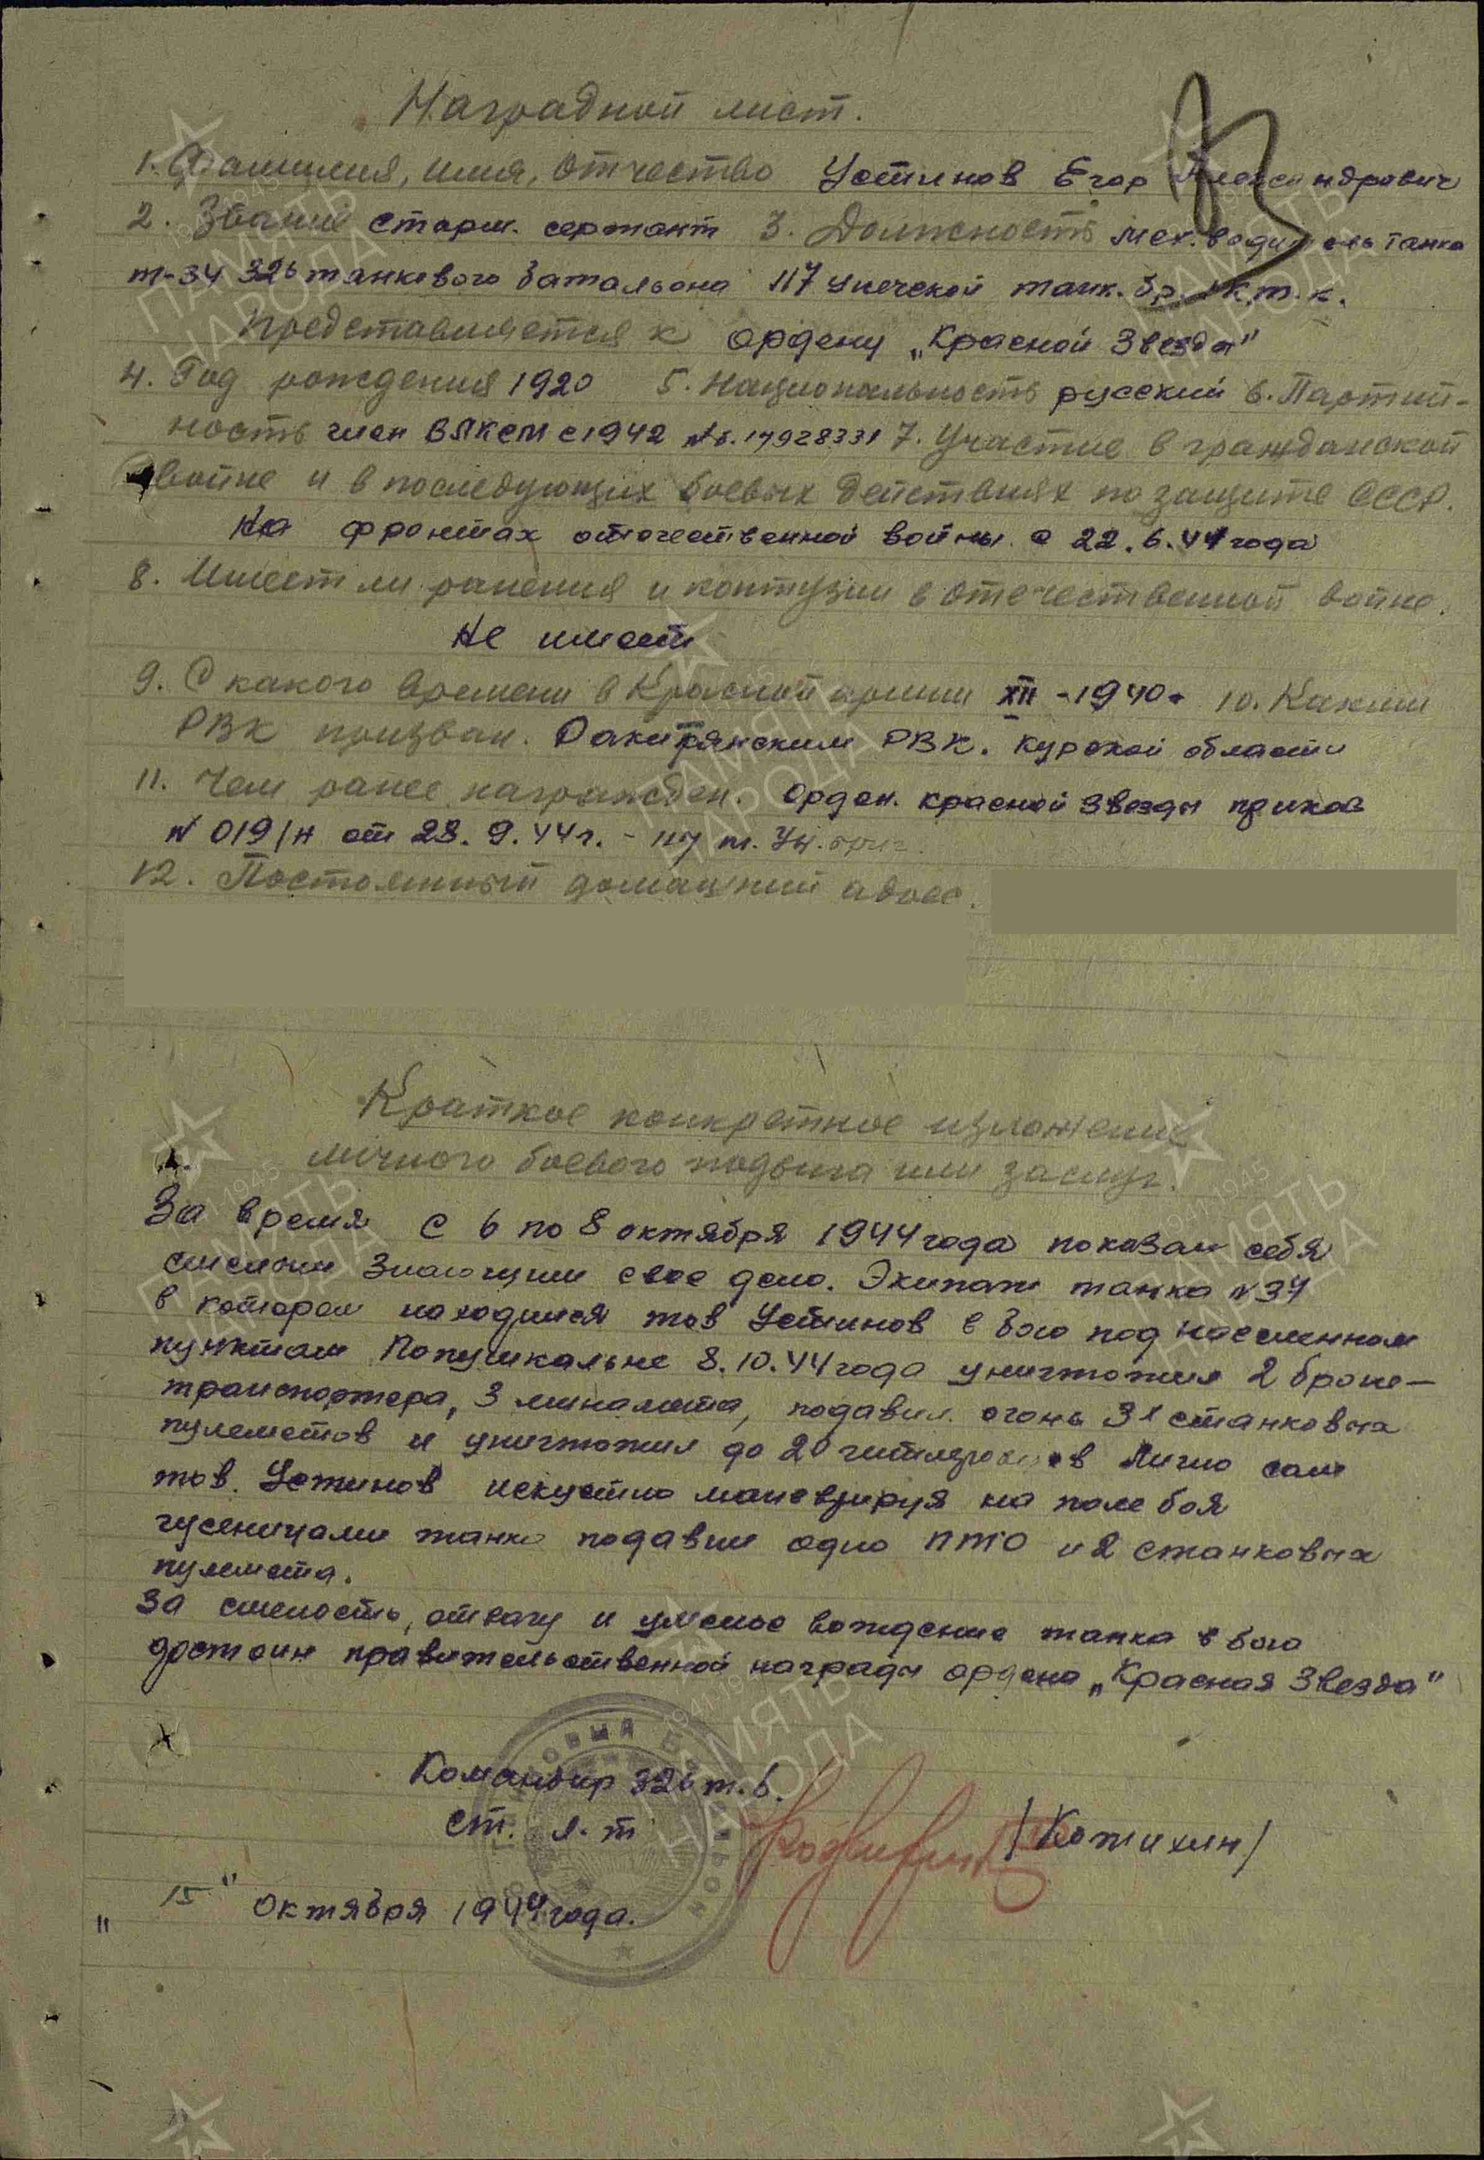 Наградной лист.
1. Фамилия, имя, отчество Устинов Егор Александрович
2. Звание старш. сержант 3. Должность мех. водитель танка
Т-34 326 танкового батальона 117 Унечской танк. бр. 1 К.т.к.
Представляется к ордену „Красной Звезда"
4. Год рождения 1920 5. Национальность русский 6. Партий-
ность член ВЛКСМ с 1942 №б. 17928331 7. Участие в гражданской
войне и в последующих боевых действиях по защите СССР.
На фронтах отечественной войны с 22.6.41 года
8. Имеет ли ранения и контузии в отечественной войне.
Не имеет
9. С какого времени в Красной армии XII-1940г 10. Каким
РВК призван. Ракитрянским РВК. Курской области
11. Чем ранее награжден. Орден. Красной Звезды приказ
N 019/н от 23.9.44г. - 117 т. Ун. бриг.
12. Постоянный домашний адрес.
Краткое конкретное изложение
личного боевого подвига или заслуг.
За время с 6 по 8 октября 1944 года показал себя
смелым знающим свое дело. Экипаж танка N 37
в котором находился тов Устинов в бою под населенном
пунктам Попушкальне 8.10.44 года уничтожил 2 броне-
транспортера, 3 миномета, подавил огонь 3х станковых
пулеметов и уничтожил до 20 гитлеровцев Лично сам
тов. Устинов искустно маневрируя на поле боя
гусеницами танка подавил одно ПТО и 2 станковых
пулемета.
За смелость, отвагу и умелое вождение танка в бою
достоин правительственной награды ордена „Красная Звезда"
Командир 326 т.б.
ст. л-т /Кожихин/
"15" октября 1944 года.
ПАМЯТЬ
НАРОДА
1941-1945